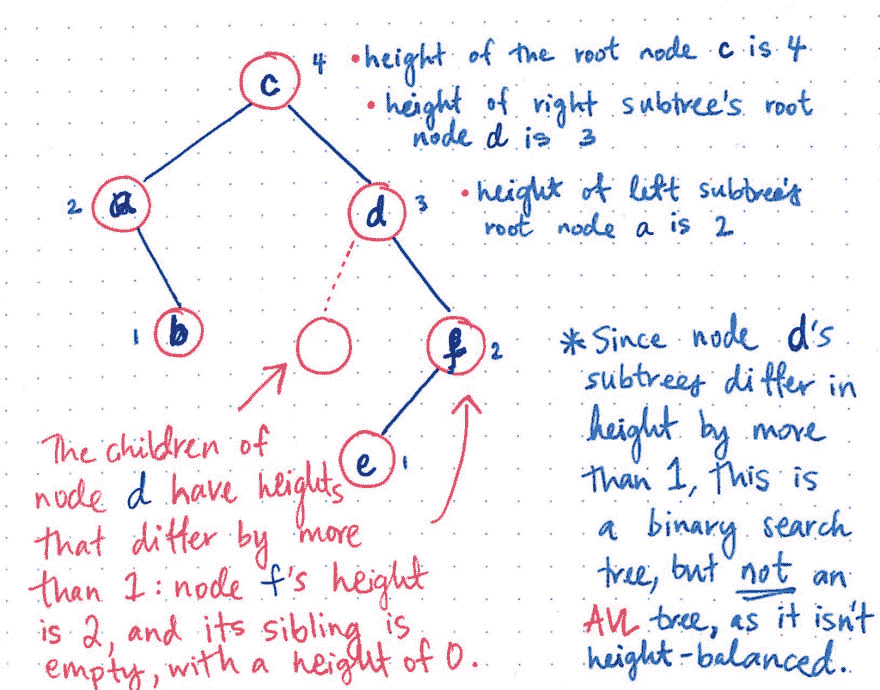 c
4
• height of the root node c is 4
• height of right subtree's root
node d is 3
2
a
d
3
• height of left subtree's
root node a is 2
1
b
f
2
e
1
The children of
node d have heights
that differ by more
than 1: node f's height
is 2, and its sibling is
empty, with a height of 0.
* Since node d's
subtrees differ in
height by more
than 1, this is
a binary search
tree, but not an
AVL tree, as it isn't
height-balanced.